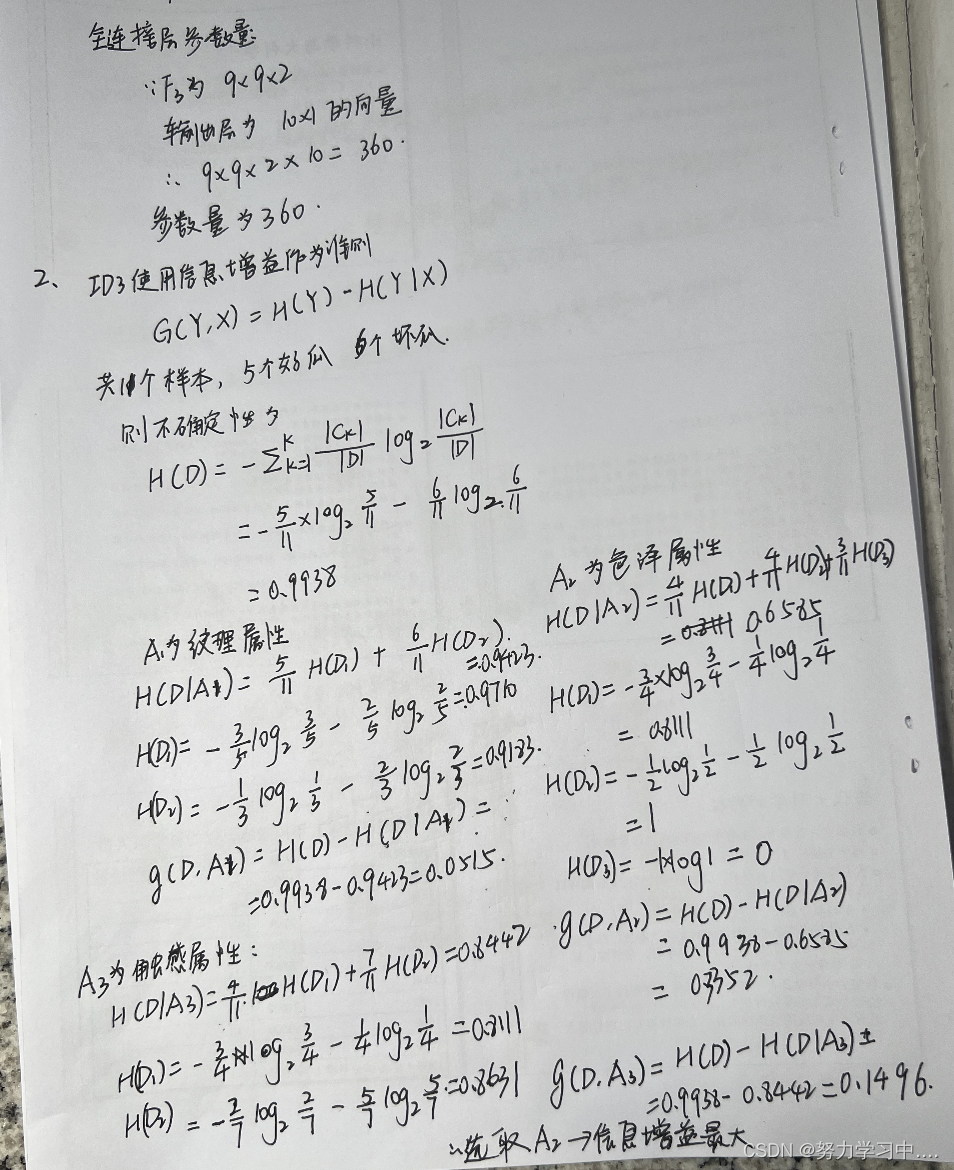 全连接层参数量:
∵F₃为 9×9×2
输出层为 10×1的向量
∴ 9×9×2×10=360.
参数量为360.
2、 ID3使用信息增益作为准则
G(Y,X)=H(Y)-H(Y|X)
共11个样本,5个好瓜 6个坏瓜.
则不确定性为
H(D)=-∑ᴷₖ₌₁ |Cₖ|/|D| log₂ |Cₖ|/|D|
=-5/11×log₂ 5/11 - 6/11 log₂ 6/11
=0.9938
A₁为纹理属性
H(D|A₁)=5/11 H(D₁)+6/11 H(D₂).
=0.9423.
H(D₁)=-3/5 log₂ 3/5 - 2/5 log₂ 2/5=0.9710
H(D₂)=-1/3 log₂ 1/3 - 2/3 log₂ 2/3=0.9183.
g(D,A₁)=H(D)-H(D|A₁)=
=0.9938-0.9423=0.0515.
A₂为色泽属性
H(D|A₂)=4/11 H(D₁)+4/11 H(D₂)+3/11 H(D₃)
=0.6585
H(D₁)=-3/4×log₂ 3/4 - 1/4 log₂ 1/4
=0.8111
H(D₂)=-1/2 log₂ 1/2 - 1/2 log₂ 1/2
=1
H(D₃)=-1×log1=0
g(D,A₂)=H(D)-H(D|A₂)
=0.9938-0.6585
=0.3352.
A₃为触感属性:
H(D|A₃)=4/11 H(D₁)+7/11 H(D₂)=0.8442
H(D₁)=-3/4×log₂ 3/4 - 1/4 log₂ 1/4=0.8111
H(D₂)=-2/7 log₂ 2/7 - 5/7 log₂ 5/7=0.8631
g(D,A₃)=H(D)-H(D|A₃)=
=0.9938-0.8442=0.1496.
∴选取A₂→信息增益最大
CSDN @努力学习中....